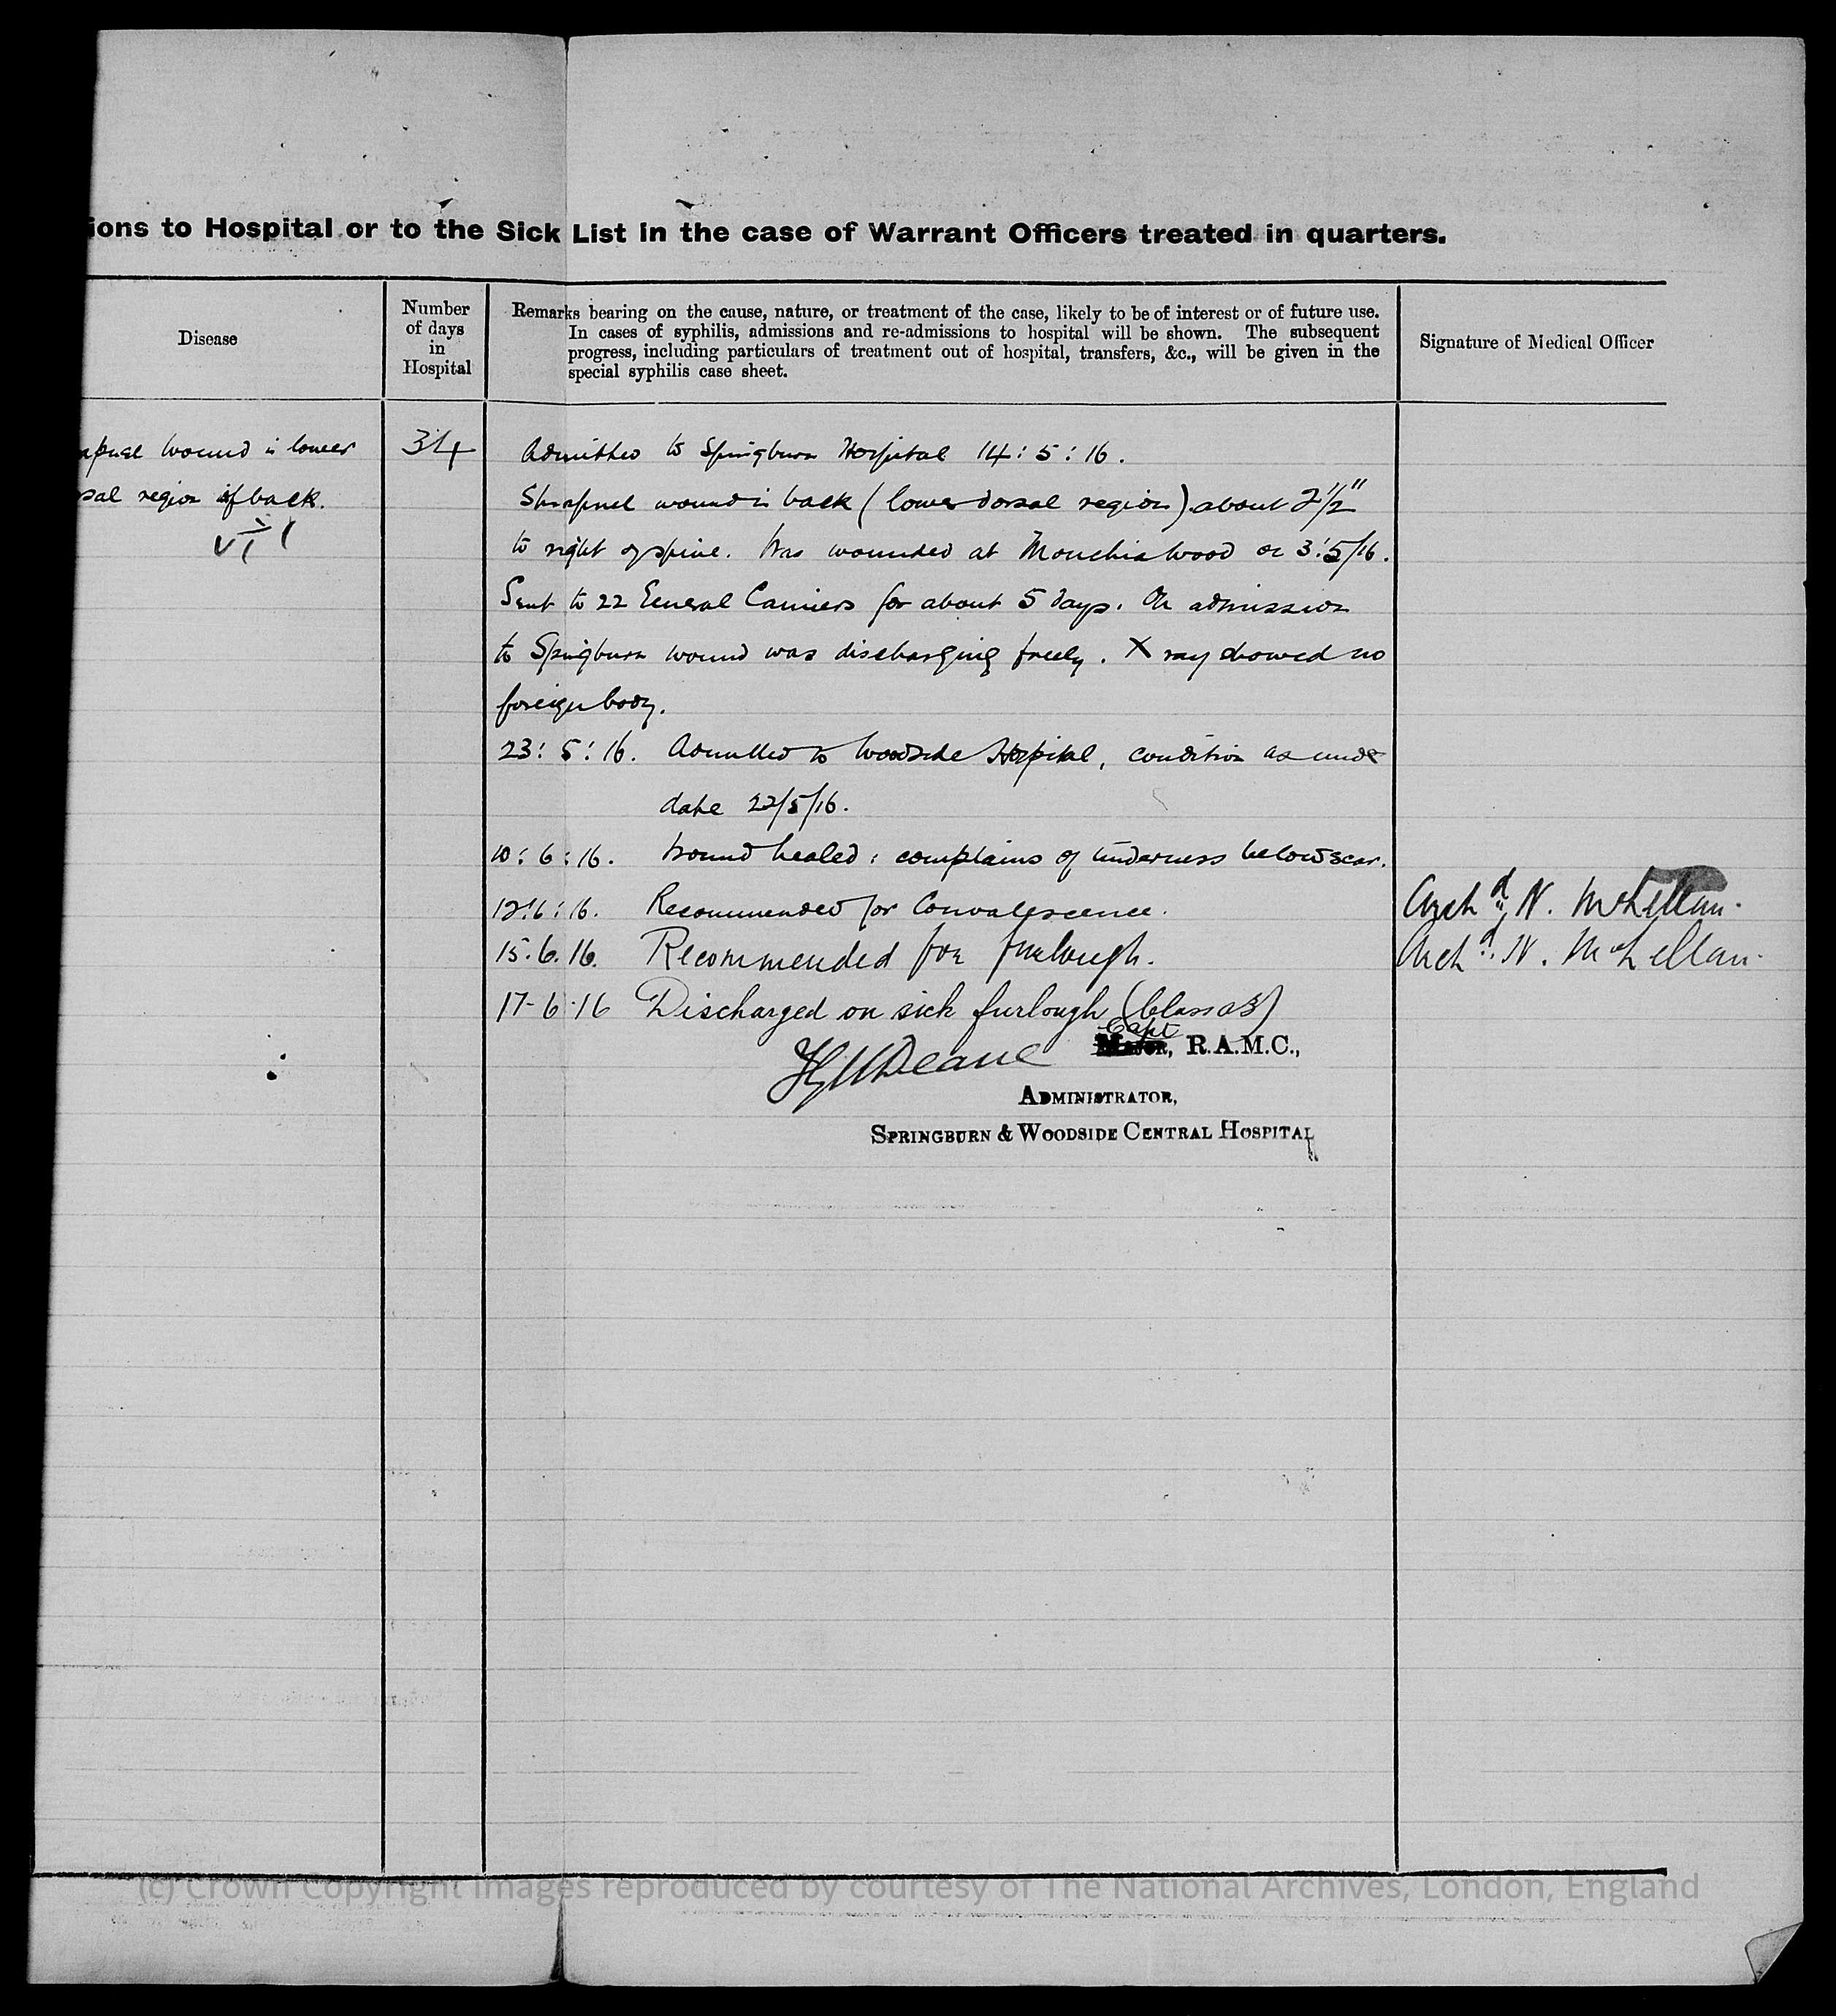 ions to Hospital or to the Sick List in the case of Warrant Officers treated in quarters.
Disease
Number
of days
in
Hospital
Remarks bearing on the cause, nature, or treatment of the case, likely to be of interest or of future use.
In cases of syphilis, admissions and re-admissions to hospital will be shown. The subsequent
progress, including particulars of treatment out of hospital, transfers, &c., will be given in the
special syphilis case sheet.
Signature of Medical Officer
apnel wound in lower
sal region of back.
VII
34
Admitted to Springburn Hospital 14:5:16.
Shrapnel wound in back (lower dorsal region) about 2½"
to right of spine. Was wounded at Monchie Wood on 3:5/16.
Sent to 22 General Camiers for about 5 days. On admission
to Springburn wound was discharging freely. X ray showed no
foreign body.
23:5:16. Admitted to Woodside Hospital, condition as under
date 22/5/16.
10:6:16. Wound healed: complains of tenderness below scar.
12:6:16. Recommended for Convalescence.
Archd. N. McLellan.
15.6.16. Recommended for furlough.
Archd. N. McLellan.
17-6-16 Discharged on sick furlough (Class
Capt
Major, R.A.M.C.,
Deane
Administrator,
Springburn & Woodside Central Hospital
(c) Crown Copyright Images reproduced by courtesy of The National Archives, London, England